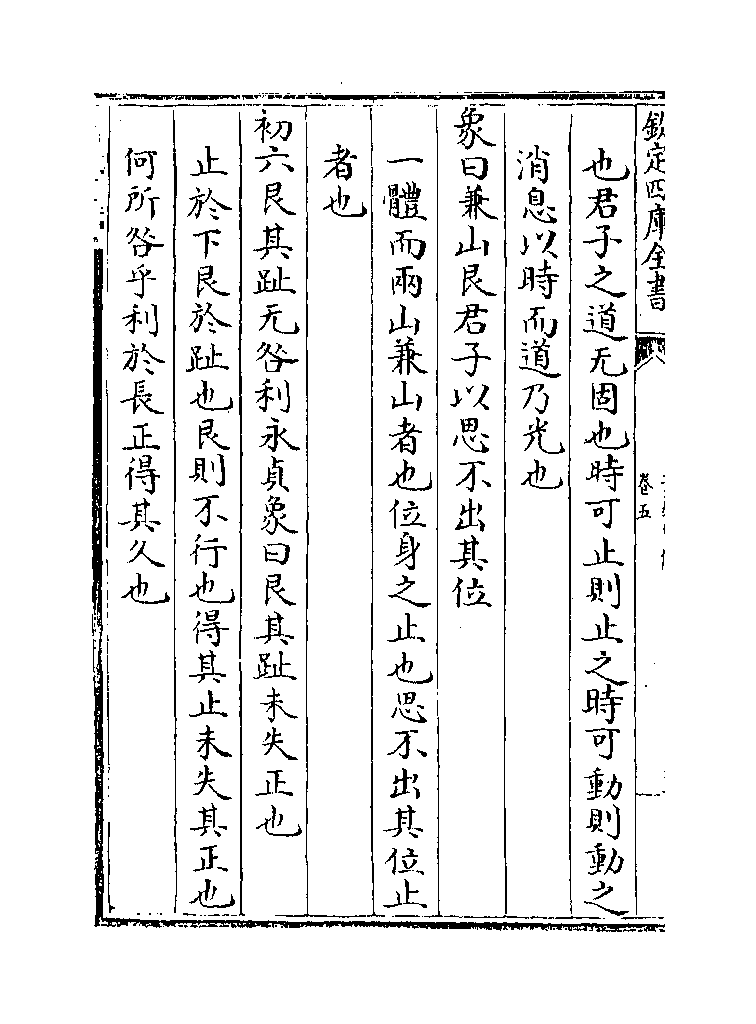 欽定四庫全書
卷五
也君子之道无固也時可止則止之時可動則動之
消息以時而道乃光也
象曰兼山艮君子以思不出其位
一體而兩山兼山者也位身之止也思不出其位止
者也
初六艮其趾无咎利永貞象曰艮其趾未失正也
止於下艮於趾也艮則不行也得其止未失其正也
何所咎乎利於長正得其久也